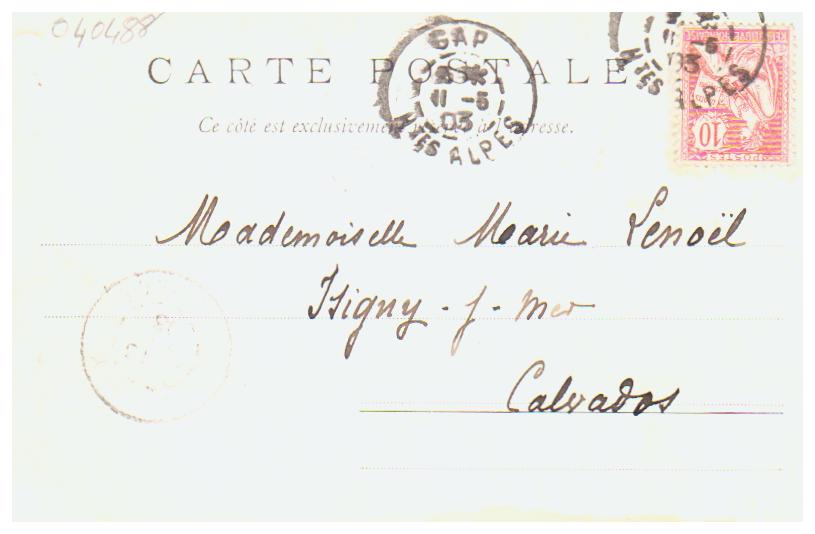 040488
CARTE POSTALE
Ce côté est exclusivement réservé à l'adresse.
GAP
11 -5
03
HTES ALPES
11 -5
03
HTES ALPES
REPUBLIQUE FRANÇAISE
10
POSTES
Mademoiselle Marie Lenoël
Isigny-s-Mer
Calvados